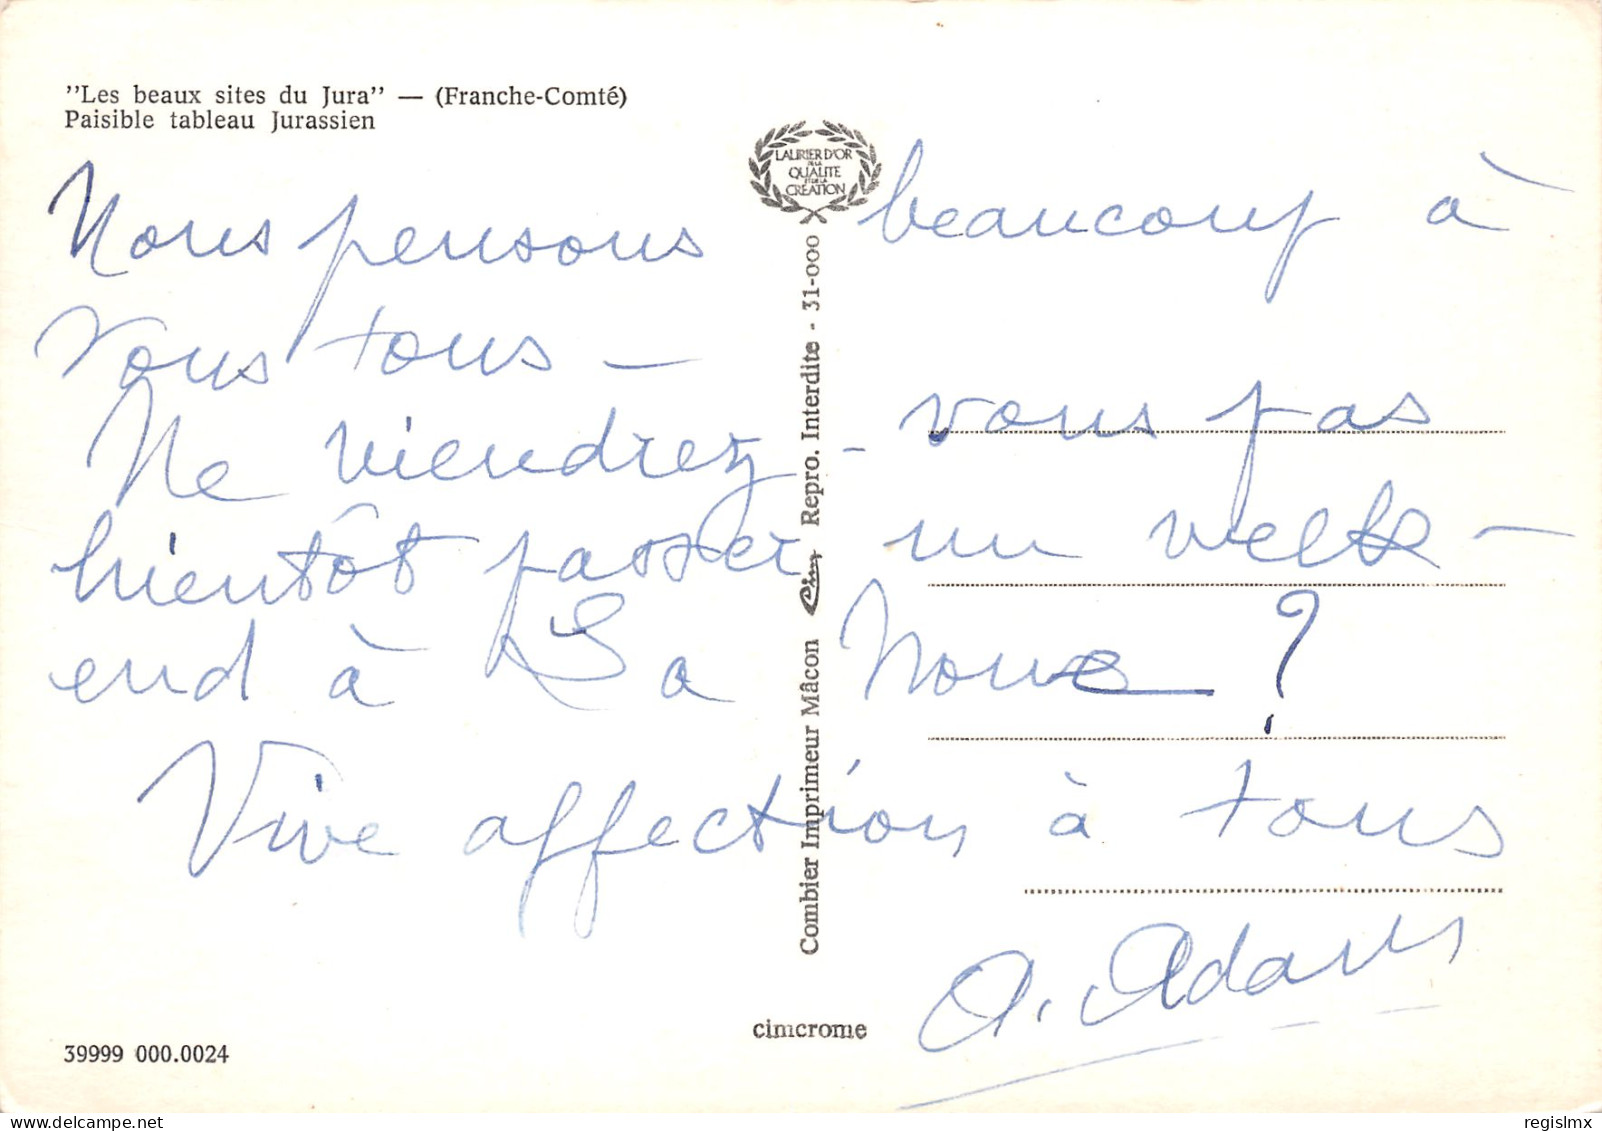 "Les beaux sites du Jura" — (Franche-Comté)
Paisible tableau Jurassien
LAURIER D'OR
DE LA
QUALITE
ET DE LA
CREATION
Nous pensons beaucoup à
vous tous —
Ne viendrez - vous pas
bientôt passer un week -
end à La Noue ?
Vive affection à tous
A. Adam
Combier Imprimeur Mâcon Cim Repro. Interdite - 31-000
cimcrome
39999 000.0024
regislmx